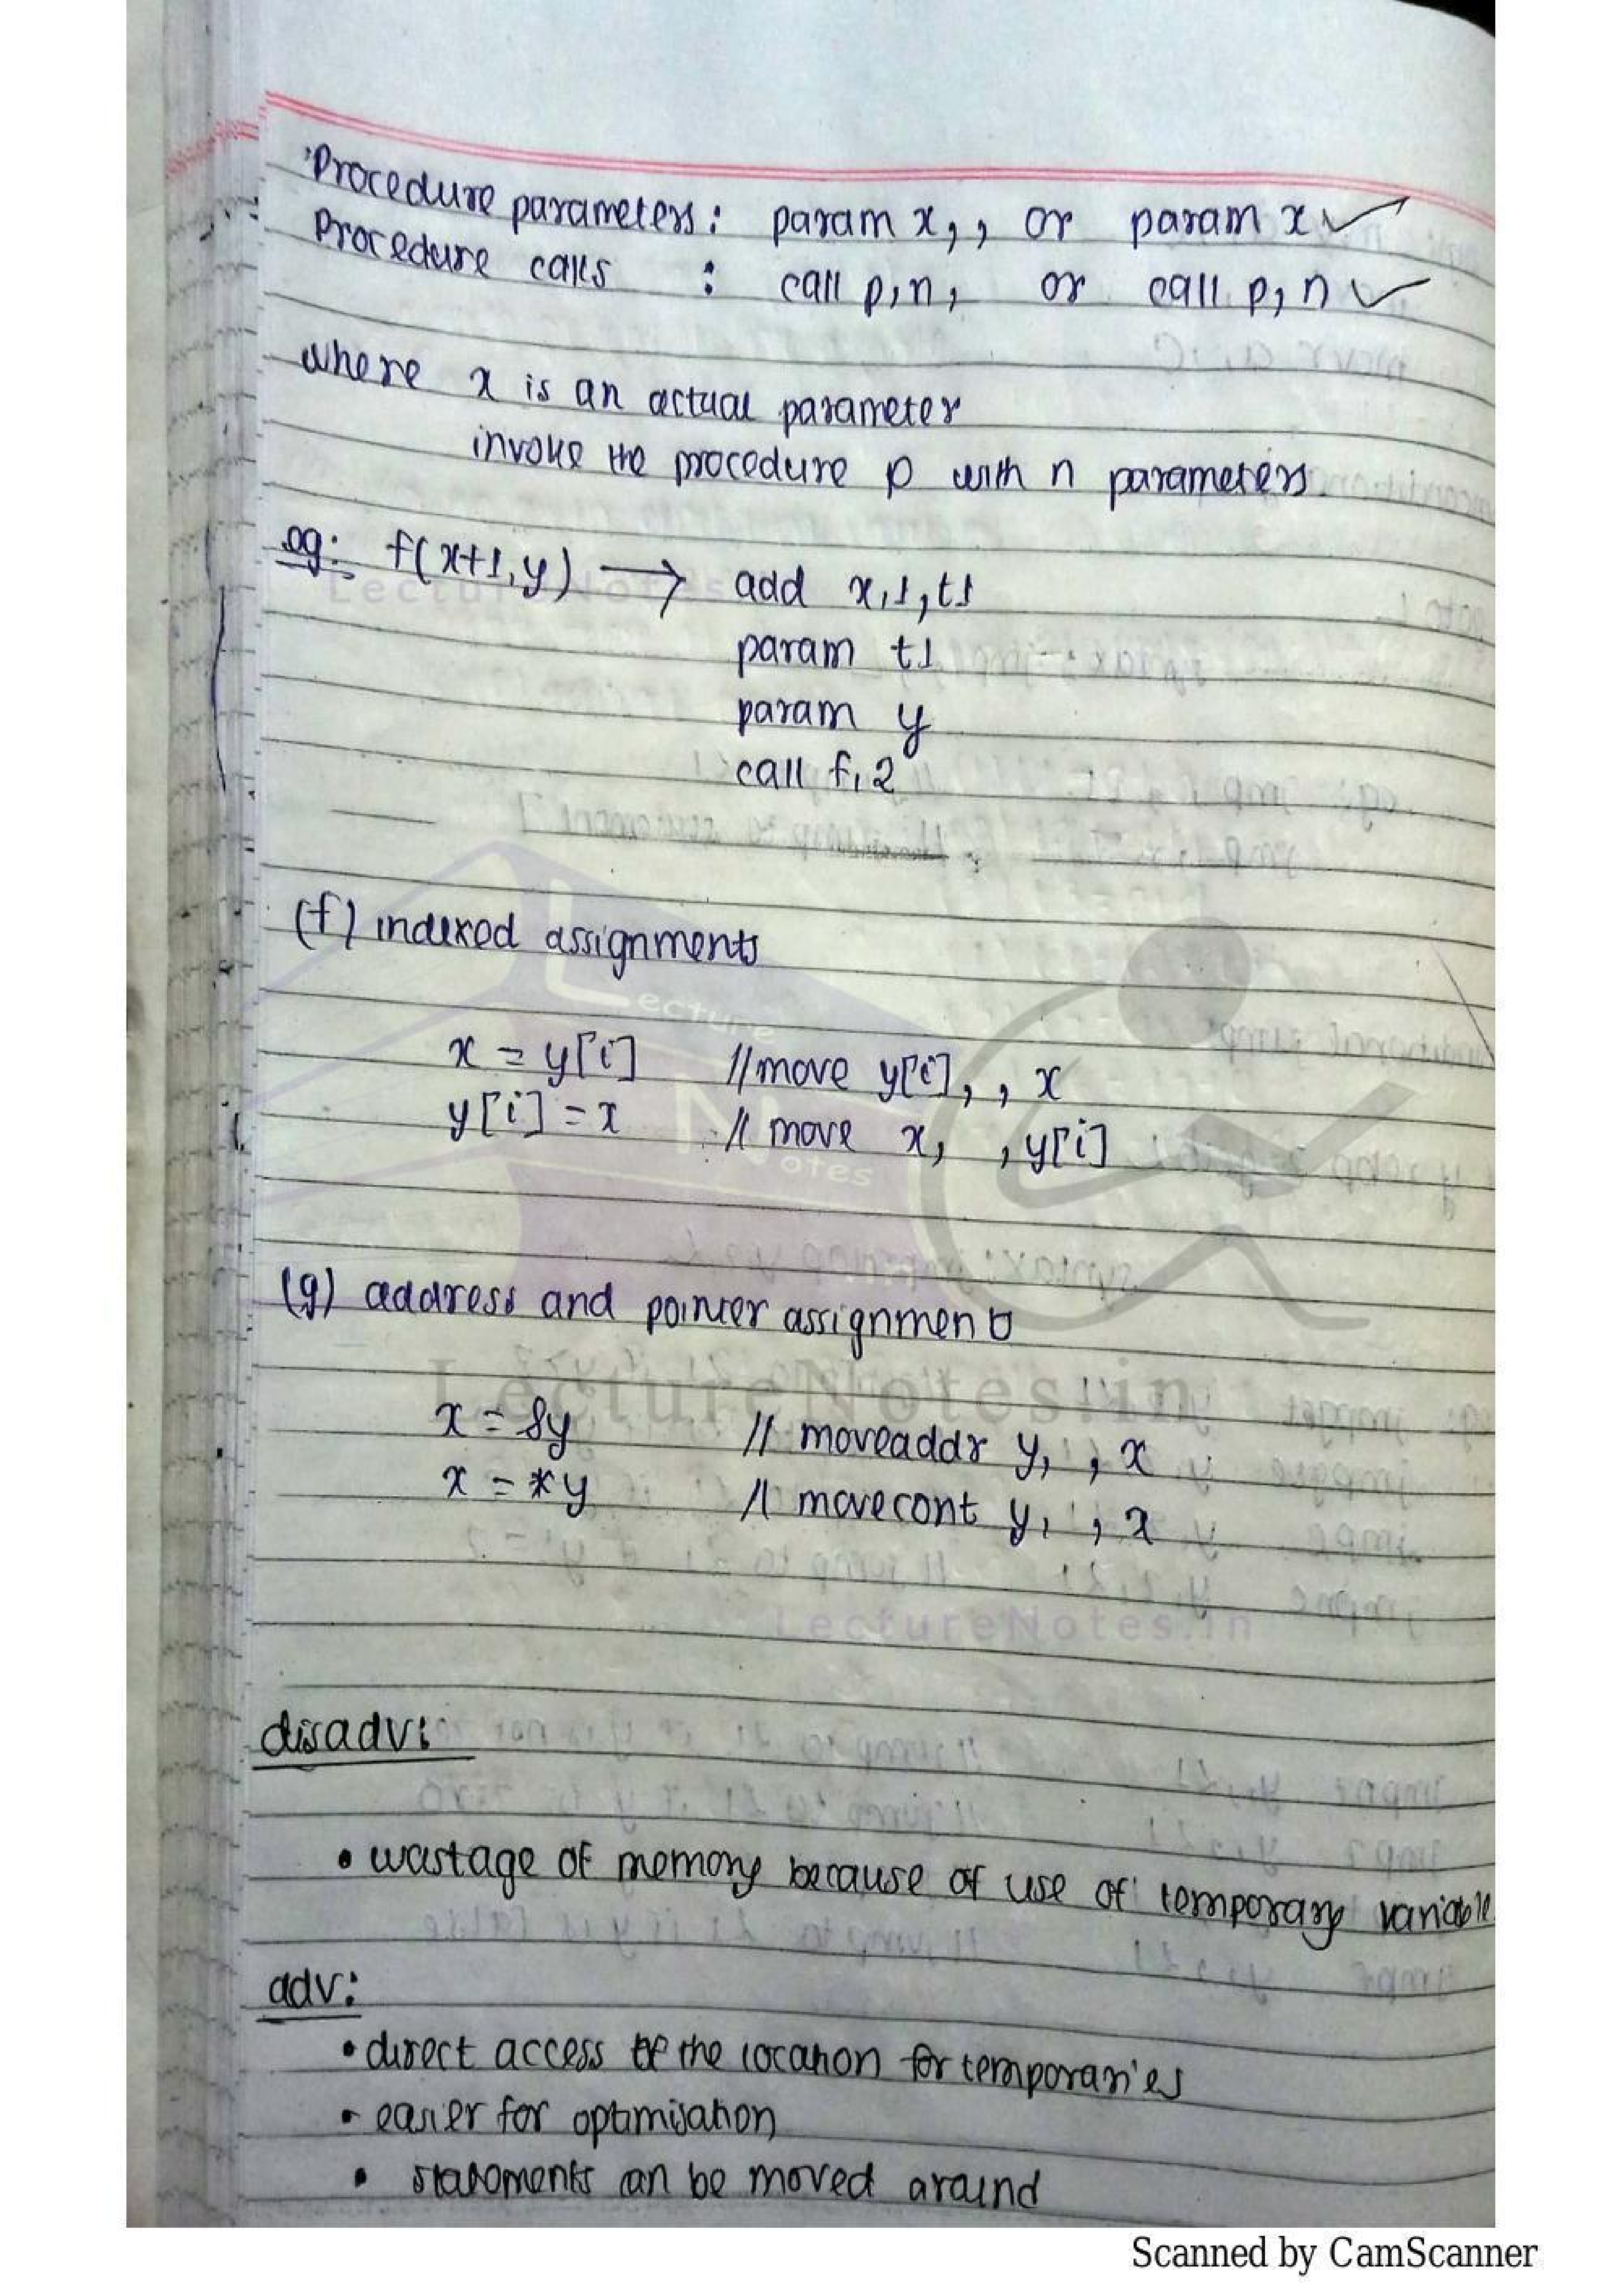 Procedure parameters : param x, , or param x ✓
Procedure calls : call p, n, or call p, n ✓
where x is an actual parameter
invoke the procedure p with n parameters
eg: f(x+1, y) → add x, 1, t1
LectureNotes
param t1
param y
call f, 2
(f) indexed assignments
Lecture
x = y[i] // move y[i], , x
y[i] = x // move x, , y[i]
Notes
(g) address and pointer assignments
LectureNotes.in
x = &y // moveaddr y, , x
x = *y // movecont y, , x
LectureNotes.in
disadv:
• wastage of memory because of use of temporary variable
adv:
• direct access of the location for temporaries
• easier for optimisation
• statements can be moved around
Scanned by CamScanner